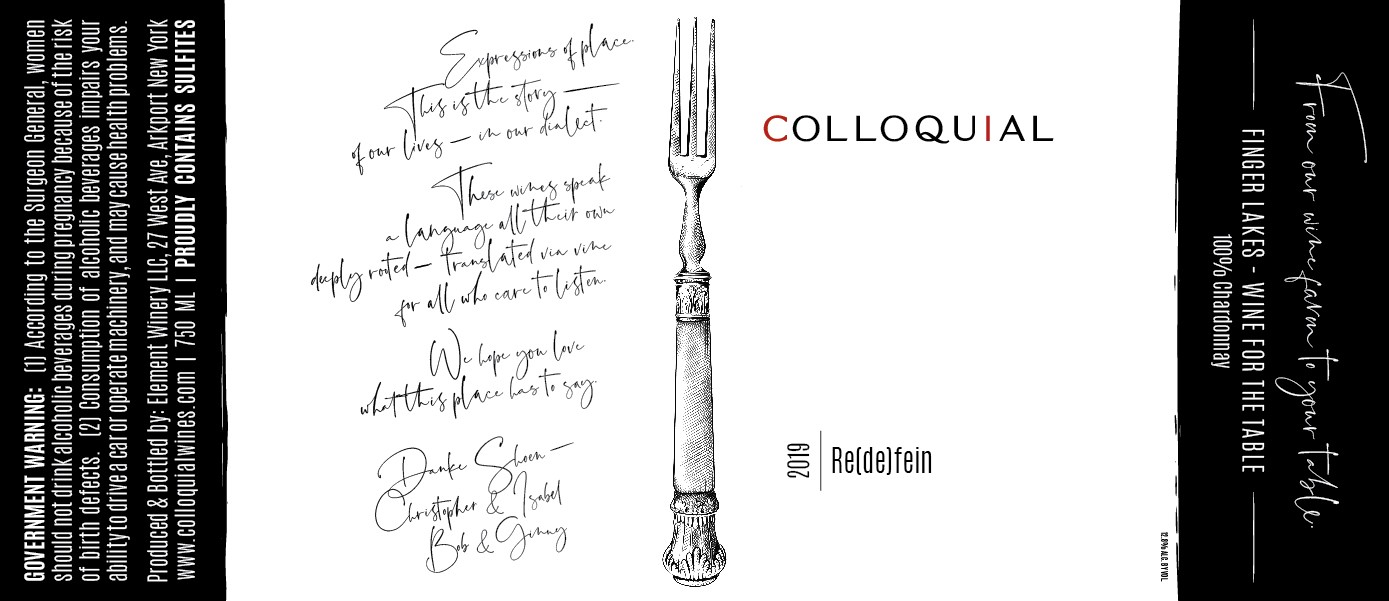 GOVERNMENT WARNING: (1) According to the Surgeon General, women
should not drink alcoholic beverages during pregnancy because of the risk
of birth defects. (2) Consumption of alcoholic beverages impairs your
ability to drive a car or operate machinery, and may cause health problems.
Produced & Bottled by: Element Winery LLC, 27 West Ave, Arkport New York
www.colloquialwines.com | 750 ML | PROUDLY CONTAINS SULFITES
Expressions of place.
This is the story —
of our lives — in our dialect.
These wines speak
a language all their own
deeply rooted — translated via vine
for all who care to listen.
We hope you love
what this place has to say.
Danke Shoen —
Christopher & Isabel
Bob & Ginny
COLLOQUIAL
2019 | Re(de)fein
12.8% ALC. BY VOL.
From our wine farm to your table.
FINGER LAKES - WINE FOR THE TABLE
100% Chardonnay